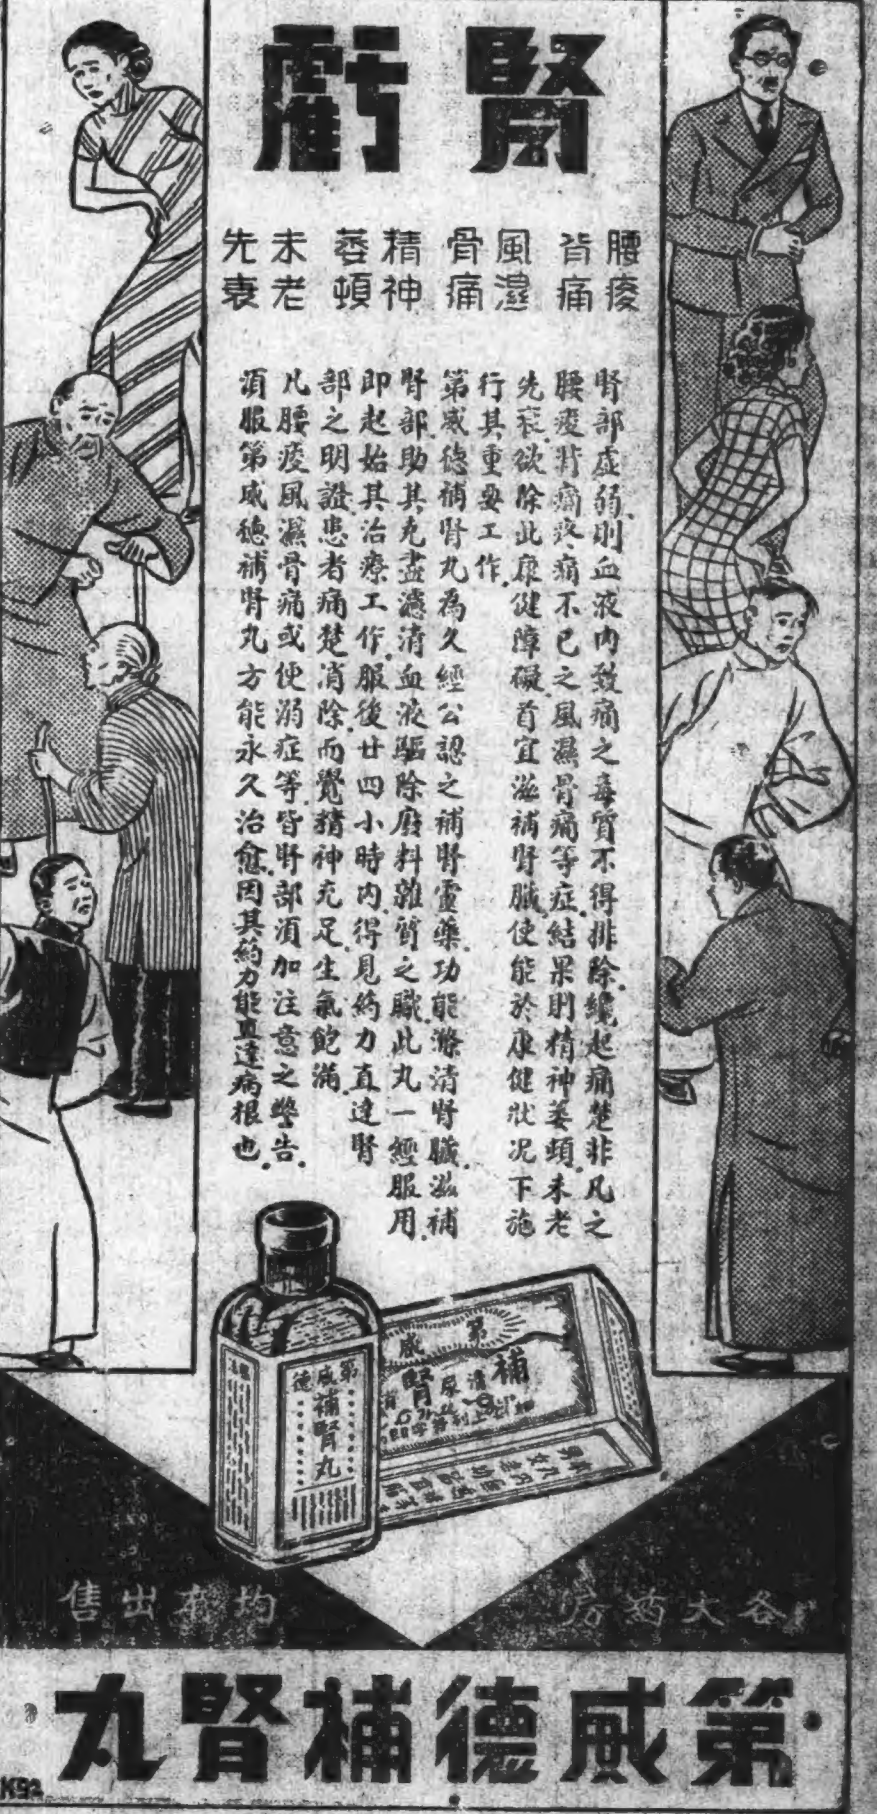 腎虧
腰痠背痛
風濕骨痛
精神萎頓
未老先衰
腎部虛弱.則血液内致痛之毒質不得排除.纔起痛楚非凡之
腰痠背痛疼痛不已之風濕骨痛等症.結果則精神萎頓.未老
先衰.欲除此康健障礙.首宜滋補腎臟.使能於康健狀况下施
行其重要工作.
第威德補腎丸為久經公認之補腎靈藥.功能滌清腎臟.滋補
腎部.助其充盡濾清血液驅除廢料雜質之職.此丸一經服用.
即起始其治療工作.服後廿四小時内.得見葯力直達腎
部之明證.患者痛楚消除.而覺精神充足.生氣飽滿.
凡腰痠風濕骨痛或便溺症等.皆腎部須加注意之警告.
須服第威德補腎丸方能永久治愈.因其葯力能直達病根也.
第威德
補腎丸
第威
補腎
各大葯房
均有出售
第威德補腎丸
K92